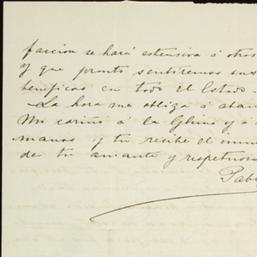 faccion se hará estensiva á otros
y que pronto sentiremos sus
benéficos en todo el Estado.
La hora me obliga á aban
Mi cariño á la y á
manas y tu recibe el inmen
de tu amante y respetuoso
Pab